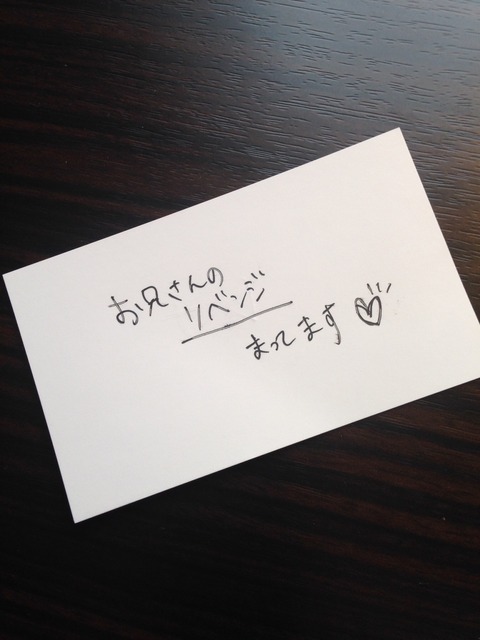 お兄さんの
リベンジ
まってます♡